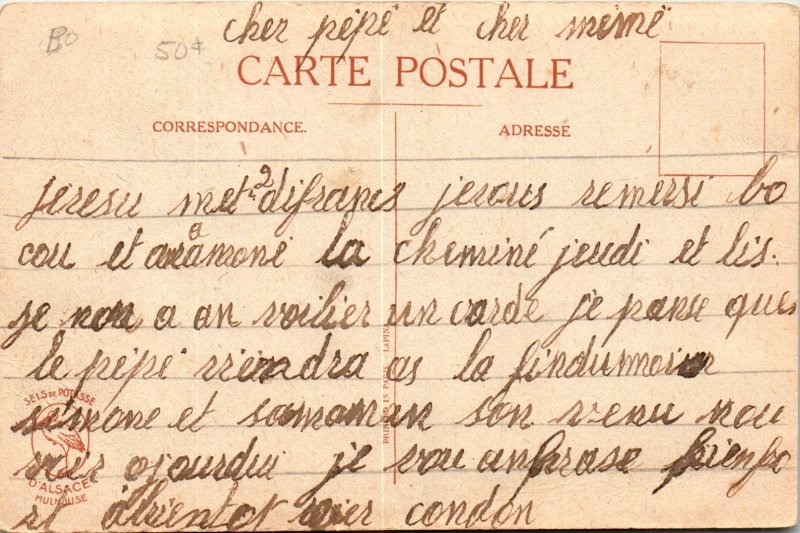 Bo
50¢
cher pépé et cher mémé
CARTE POSTALE
CORRESPONDANCE.
ADRESSE
jeresu met 2 difrancs jevous remersi bo
cou et a ramoné la cheminé jeudi et lis.
je non a an voilier un carde je panse que
le pépé viendra as la findumoi
simone et samaman son venu nou
voir ojourdui je vou anbrase bienfo
rt abientot
condon
SELS DE POTASSE
D'ALSACE
MULHOUSE